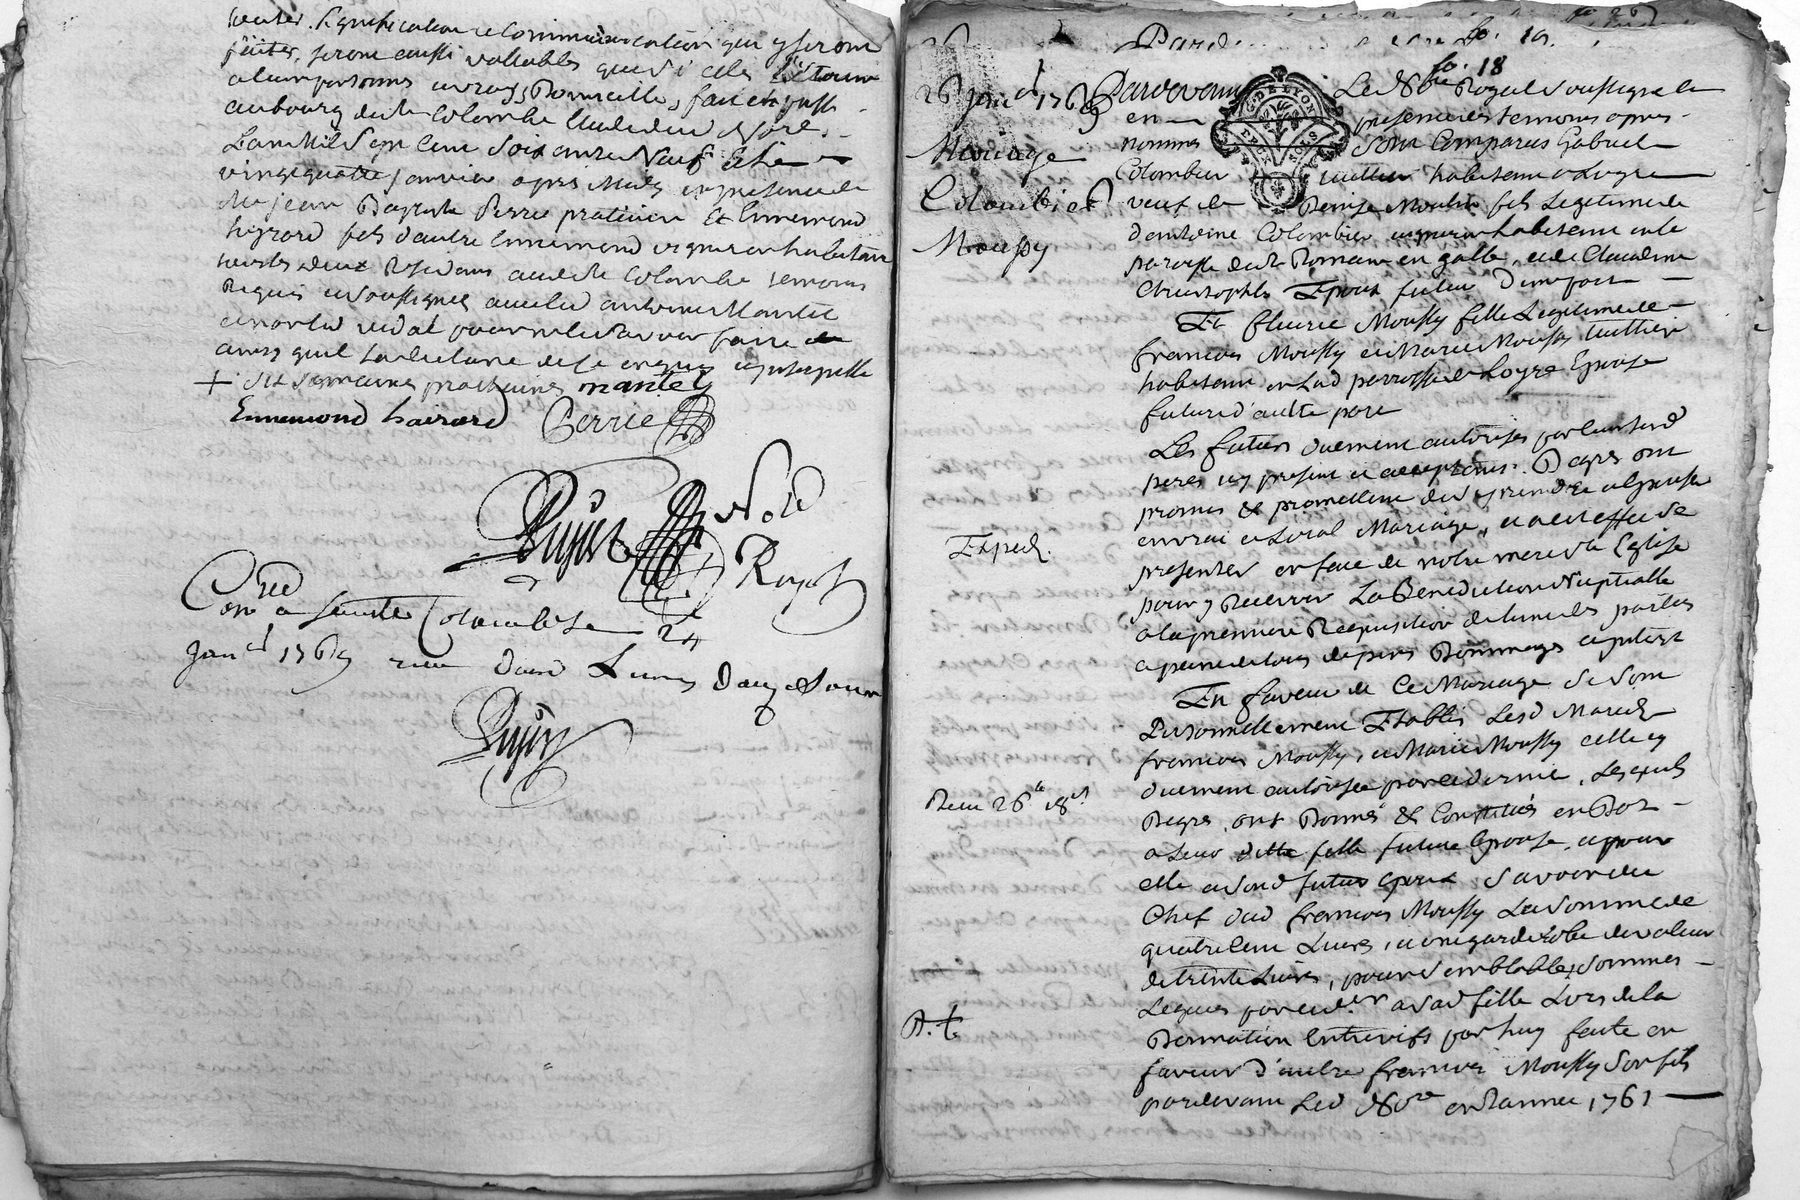 Signification et Communication qui y seront
faites, seront aussi vallables que si elles Etoient
a leurs personnes ou vrays Domicilles, fait et passé
au bourg de Ste Colombe Etude dud Nore.
L'an Mil Sept Cent Soixante Neuf Et le
vingt quatre janvier apres Midy en presence de
Me jean Baptiste Perrie praticien Et Ennemond
fils d'autre Ennemond vigneron habitant
tous deux Residans aud Ste Colombe temoins
Requis et Soussignés avec led antoine Mantel
et non led vidal pour ne le scavoir faire
ainsy quil l'a declaré de ce enquis et interpellé
+ six semaines prochaines mantel
Ennemond hairard Perrie
Pujot Nore
Royal
Con lé a Sainte Colombe le 24
Janer 1769 reçu
Pujot
fo. 19.
fo. 18
26 Janer 1769
Mariage
Colombier
Moussy
Expedé.
Reçu 26tt 18s
B.t.
G. DE LYON
DEUX SOLS
Pardevant Le Nore Royal Soussigné et
en presence des temoins apres
nommés Sont Comparus Gabriel
Colombier tuillier habitant a Loyre
veuf de Denise Moulin fils Legitime de
d'antoine Colombier vigneron habitant en la
paroisse de St Romain en galle, et de Claudine
Christophle Epoux futur D'une part
Et fleurie Moussy fille Legitime de
francois Moussy et Marie Moussy tuillier
habitant en lad parroisse de Loyre Epouse
future d'autre part
Les futurs duement autorisés par leursd
peres icy present et acceptans. De grés ont
promis & promettent de se prendre et Epouser
en vrai et Loial Mariage, et a cet effet de se
presenter en face de notre mere Ste Eglise
pour y Recevoir La Benediction Nuptialle
a la premiere Requisition de l'une des parties
a peine de tous depens Dommages et interest
En faveur de Ce Mariage Se Sont
Personnellement Etablis Lesd Mariés
francois Moussy, et Marie Moussy celle cy
duement autorisée par ce dernier, Lesquels
De grés, ont Donné & Constitué en Dot
a Leur ditte fille future Epouse, et pour
elle aud futur Epoux Savoir du
Chef dud francois Moussy La Somme de
quatre Cent Livres, et une garderobe de valeur
de trente Livres, pour Semblables Sommes
Leguées par ced.er a sad fille Lors de la
Donnation Entrevifs par luy faite en
faveur d'autre francois Moussy Son fils
pardevant Led Nore en l'année 1761